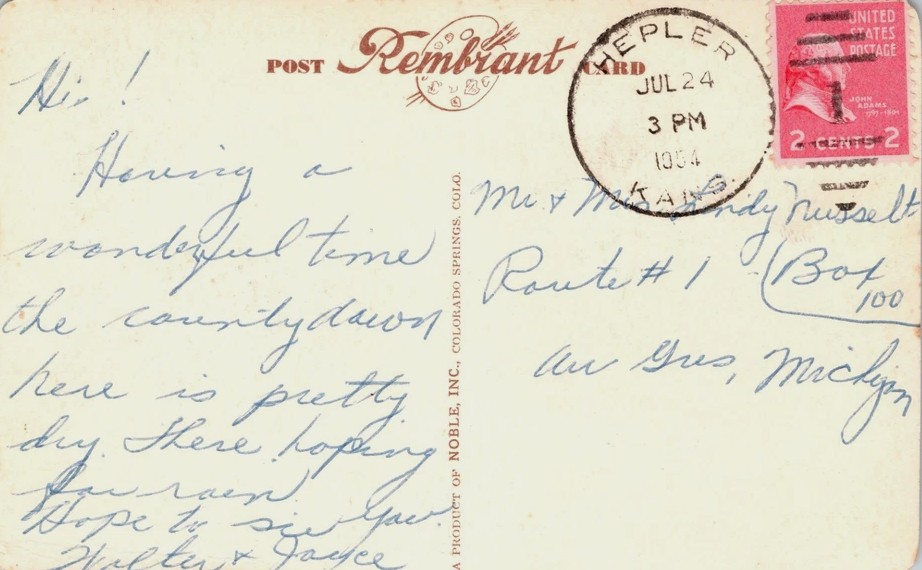 POST Rembrant CARD
HEPLER
JUL 24
3 PM
1954
KANS.
UNITED
STATES
POSTAGE
JOHN
ADAMS
1797-1801
2 CENTS 2
Hi !
Having a
wonderful time
the county down
here is pretty
dry. There hoping
for rain
Hope to see you.
Walter & Joyce
A PRODUCT OF NOBLE, INC., COLORADO SPRINGS, COLO.
Mr & Mrs Nusselt
Route # 1 - Box
100
Au Gres, Michigan